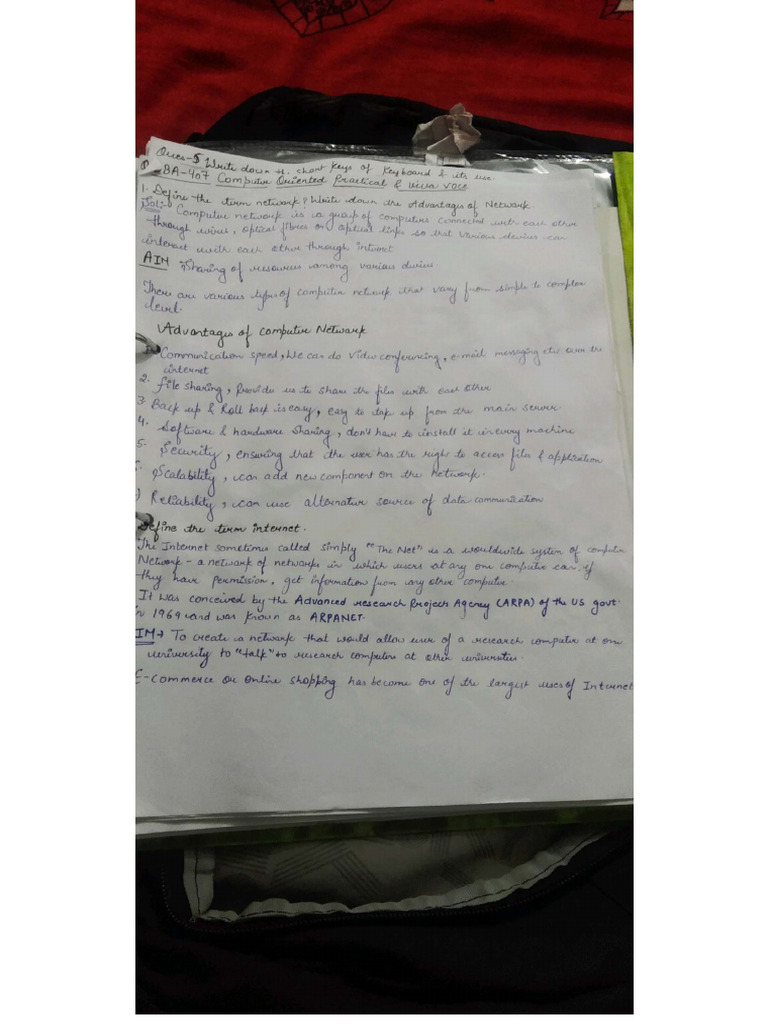 Ques-5 Write down th. short keys of Keyboard & its use
BA-407 Computer Oriented Practical & viva voce
1. Define the term network? Write down the Advantages of Network.
Sol:- Computer network is a group of computers connected with each other
through wires, optical fibres or optical links so that various devices can
interact with each other through internet
AIM Sharing of resources among various devices
There are various types of computer network that vary from simple to complex
level.
Advantages of computer Network
Communication speed, We can do Video conferencing, e-mail messaging etc the
internet
2. file sharing, Provide us to share the files with each other
3. Back up & Roll back is easy, easy to up from the main server
4. Software & hardware sharing, don't have to install it in every machine
5. Security, ensuring that the user has the right to access files & application
Scalability, can add new component on the network.
) Reliability, can use alternative source of data communication
Define the term internet.
The Internet sometimes called simply "The Net" is a worldwide system of computer
Network - a network of networks in which users at any one computer can, if
they have permission, get information from any other computer
It was conceived by the Advanced research Projects Agency (ARPA) of the US govt.
in 1969 and was known as ARPANET.
IM→ To create a network that would allow user of a research computer at one
university to "talk" to research computers at other universities.
E-commerce or Online shopping has become one of the largest uses of Internet